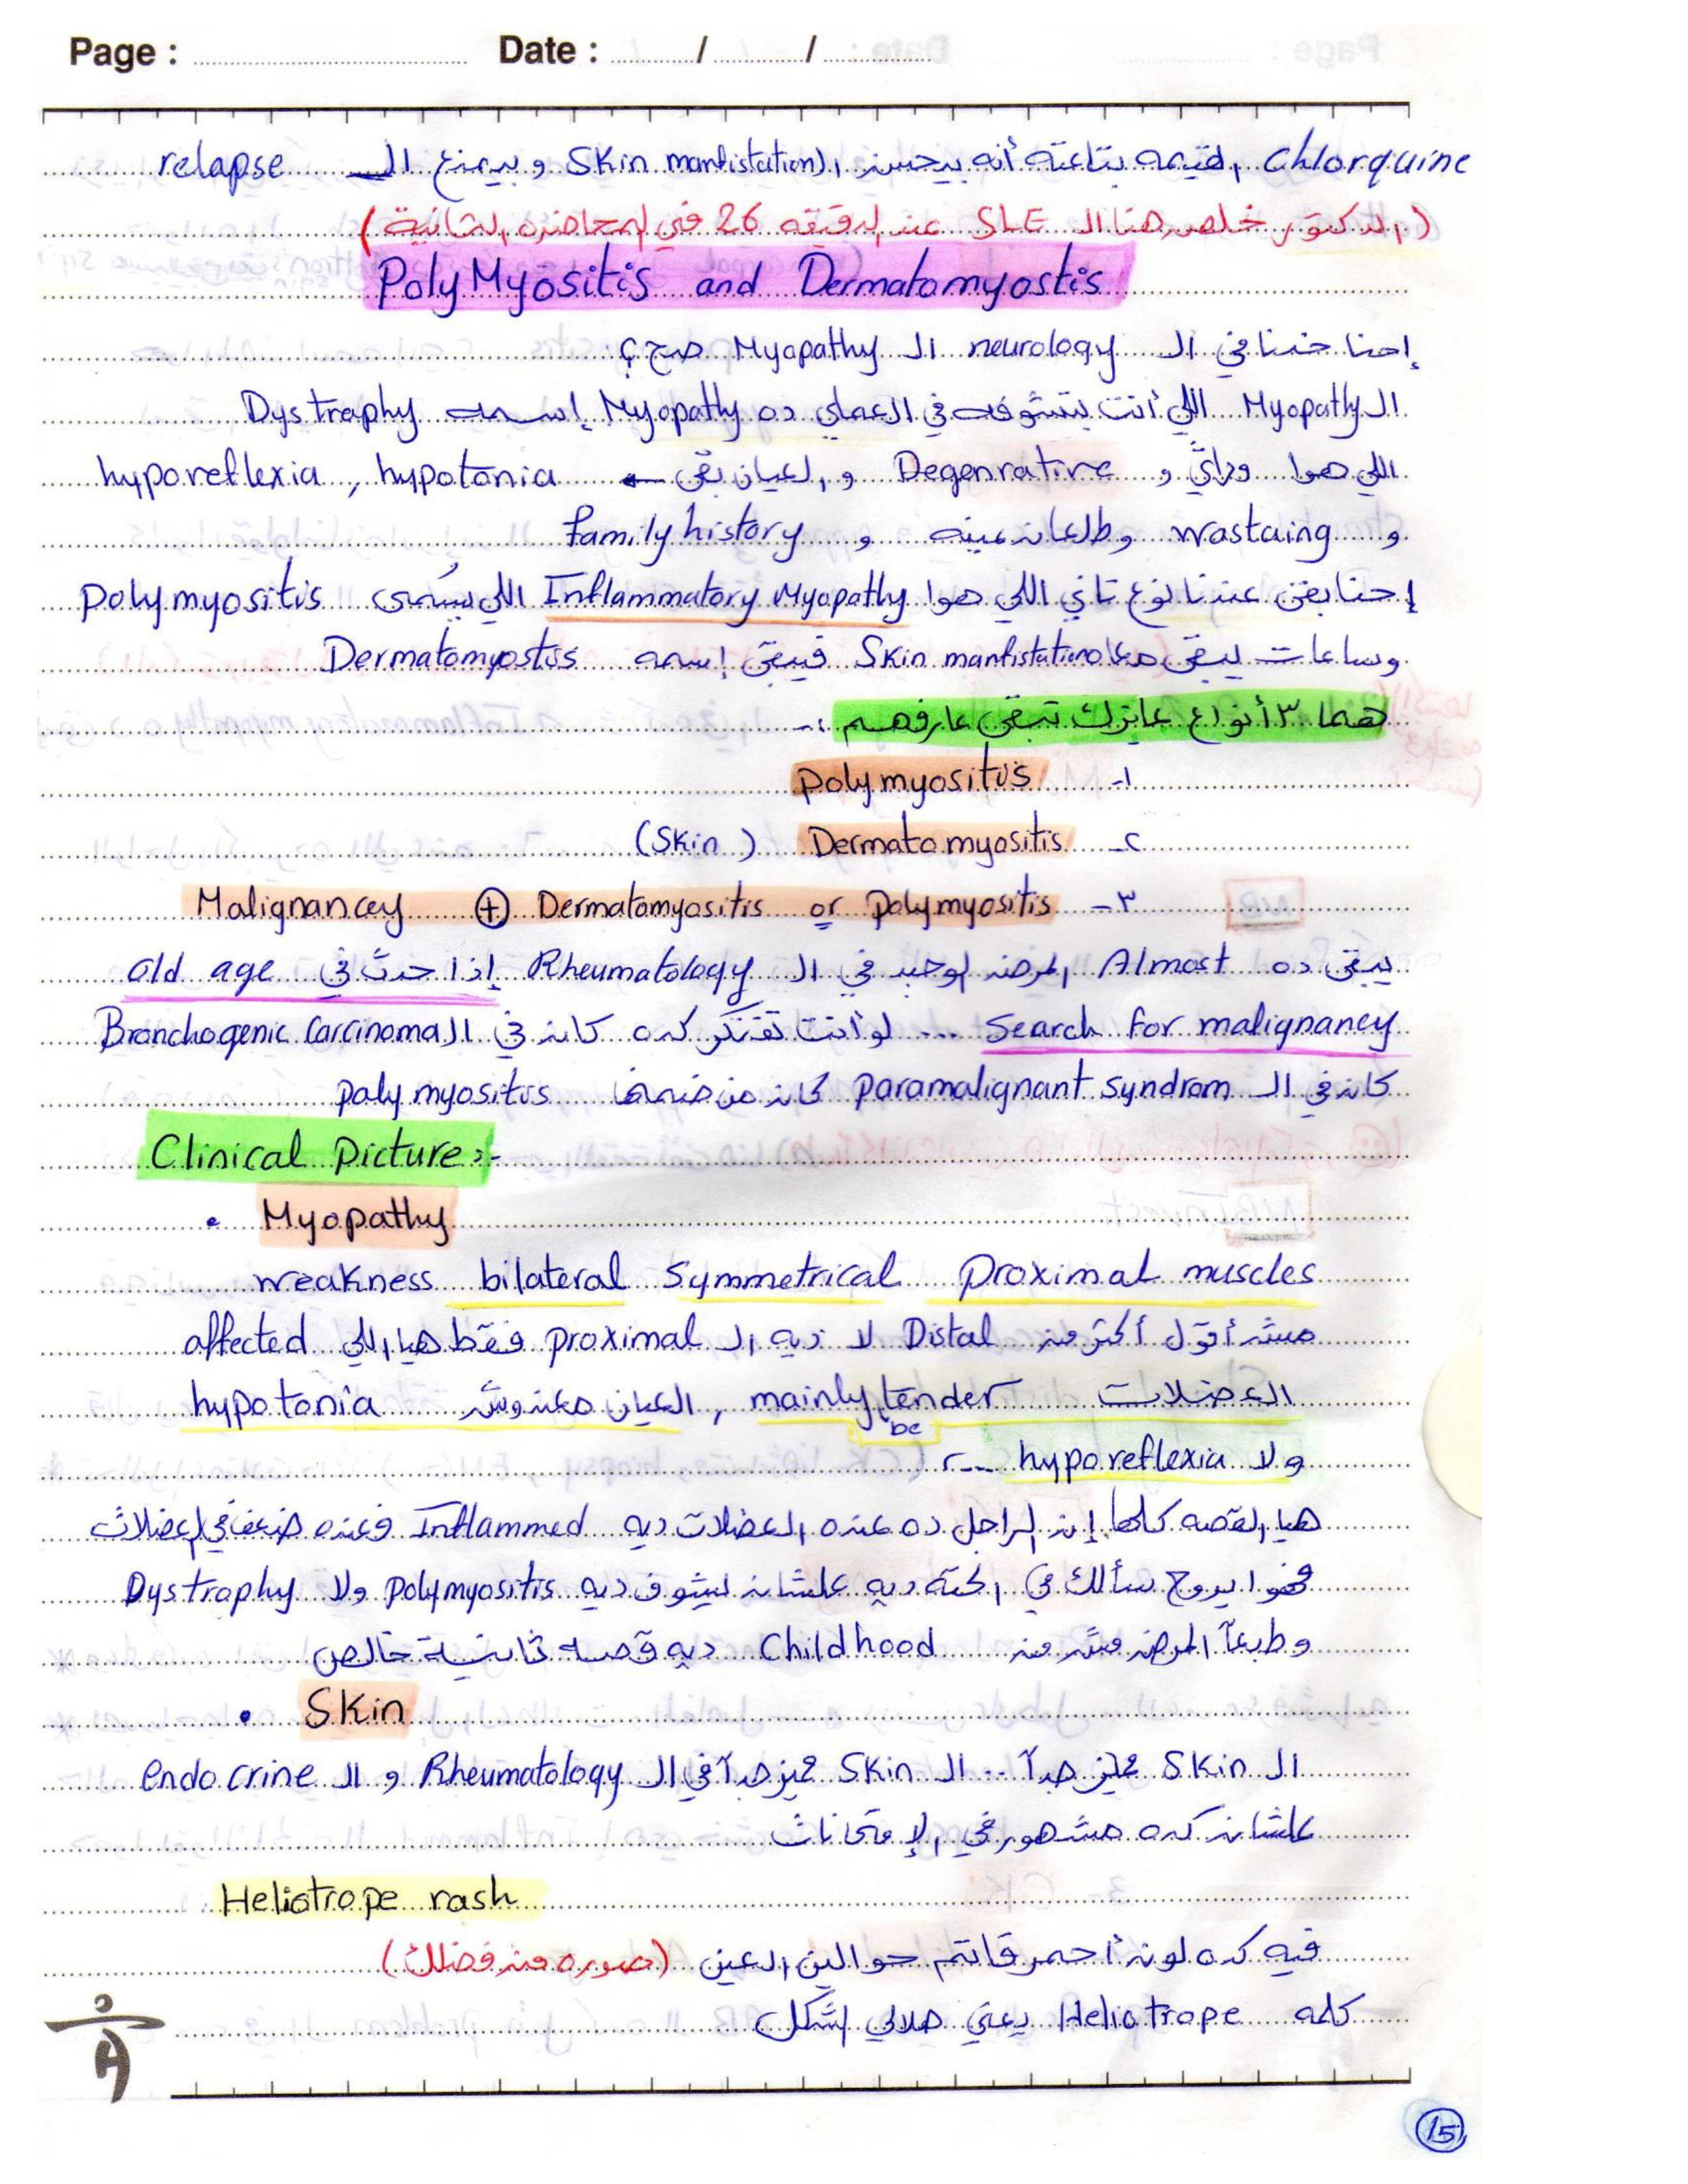 Page : Date : / /
Chlorquine القيمه بتاعته أنه بيحسن ال Skin manfistation و بيمنع الـ relapse
(الدكتور خلص هنا الـ SLE عند الدقيقه 26 في المحاضره الثانية)
PolyMyositis and Dermatomyostis
إحنا خدنا في الـ neurology الـ Myopathy صح ؟
الـ Myopathy اللي أنت بتشوفه في العملي ده Myopathy إسمه Dystraphy
اللي هوا وراثي و Degenrative و العيان بقى ← hypotonia , hyporeflexia
و wastaing وطلعان عينه و family history
إحنا بقى عندنا نوع تاني اللي هوا Inflammatory Myopathy اللي بيسمى polymyositis
وساعات يبقى معا Skin manfistation فيبقى إسمه Dermatomyostis
هما ٣ أنواع عايزك تبقى عارفهم :-
١- polymyositis
٢- Dermatomyositis (Skin)
٣- polymyositis or Dermatomyositis ⊕ Malignancey
يبقى ده Almost المرض الوحيد في الـ Rheumatology إذا حدث في old age
Search for malignancy ... لو أنت تفتكر كده كان في الـ Bronchogenic Carcinoma
كان في الـ paramalignant syndrom كان من ضمنها polymyositis
Clinical Picture:-
• Myopathy
weakness bilateral Symmetrical Proximal muscles
مش أقول أكتر من Distal لا ديه الـ proximal فقط هيا اللي affected
العضلات mainly be tender , العيان معندوش hypotonia
ولا hyporeflexia
هيا القصه كلها إن الراجل ده عنده العضلات ديه Inflammed فعنده ضعف في العضلات
فهوا يروح سألك في الحته ديه علشان يشوف ديه polymyositis ولا Dystrophy
وطبعاً المرض مش من Childhood ديه قصه ثانية خالص
• Skin
الـ Skin مميز جداً .. الـ Skin مميز جداً في الـ Rheumatology و الـ endocrine
علشان كده مشهور في الإمتحانات
Heliotrope rash
فيه كده لون أحمر قاتم حوالين العين (صوره من فضلك)
كلمه Heliotrope يعني هلالي الشكل
15